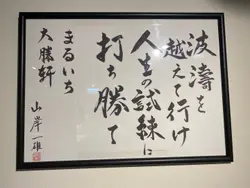 波濤を
越えて行け
人生の試練に
打ち勝て
まるいち
大勝軒
山岸一雄